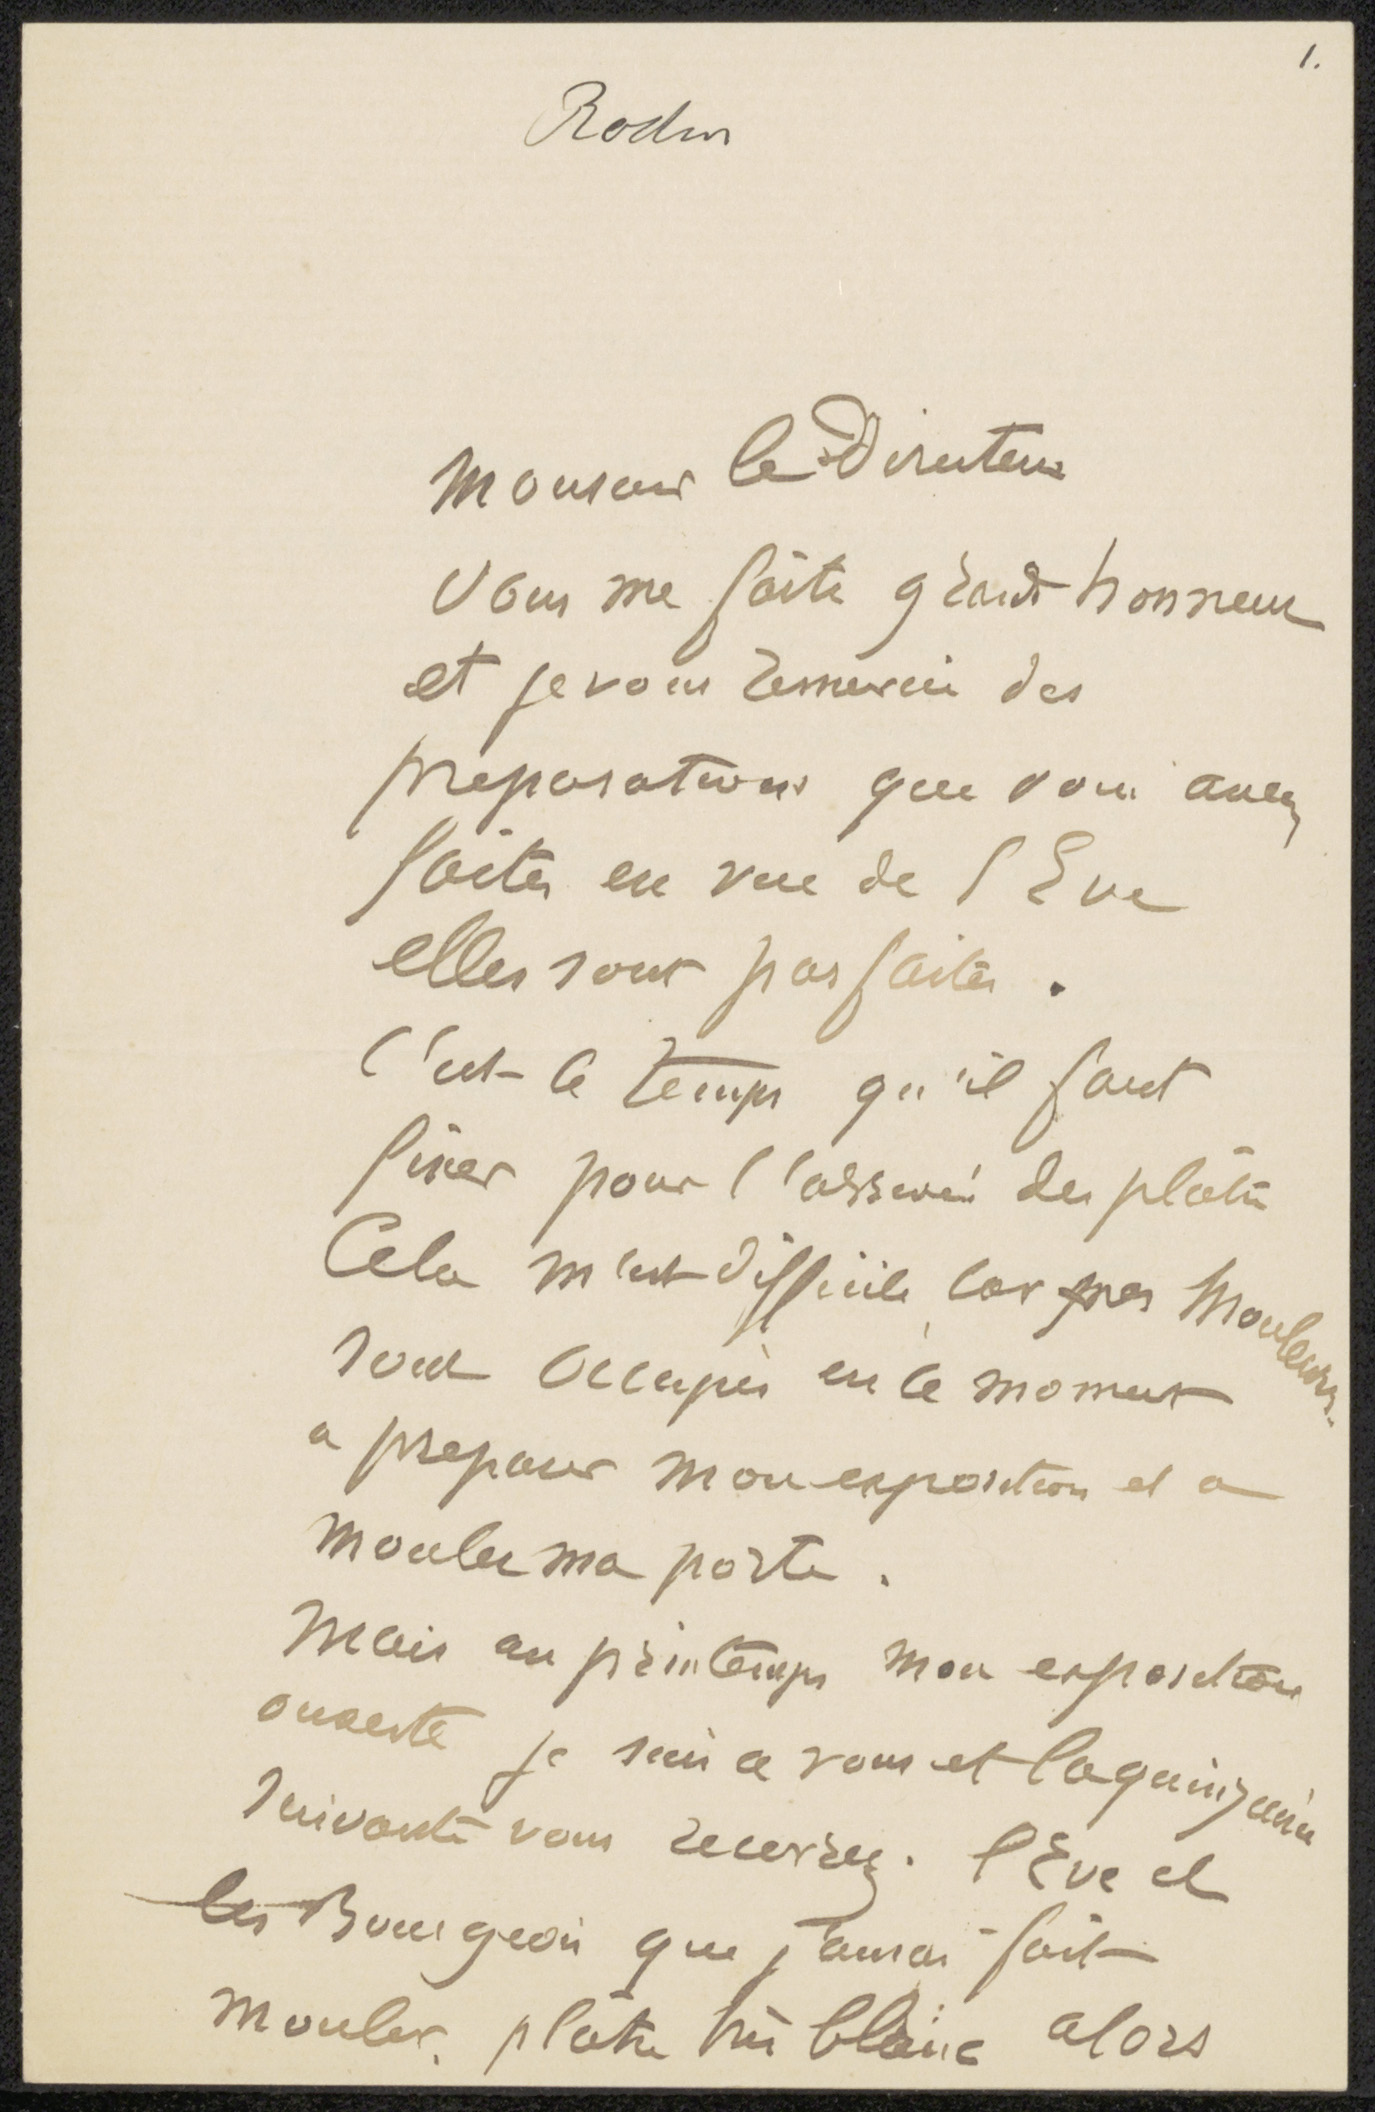 1.
Rodin
Monsieur le Directeur
Vous me faite grand honneur
et je vous remercie des
preparations que vous avez
faites en vue de l'Eve
elles sont parfaites.
C'est le temps qu'il faut
fixer pour l'arrivée des plâtre
Cela m'est difficile, car mes mouleurs
sont occupés en ce moment
a preparer mon exposition et a
mouler ma porte.
Mais au printemps mon exposition
ouverte je suis a vous et la quinzaine
suivante vous recevrez. l'Eve et
les Bourgeois que j'aurai fait
mouler. plâtre très blanc alors